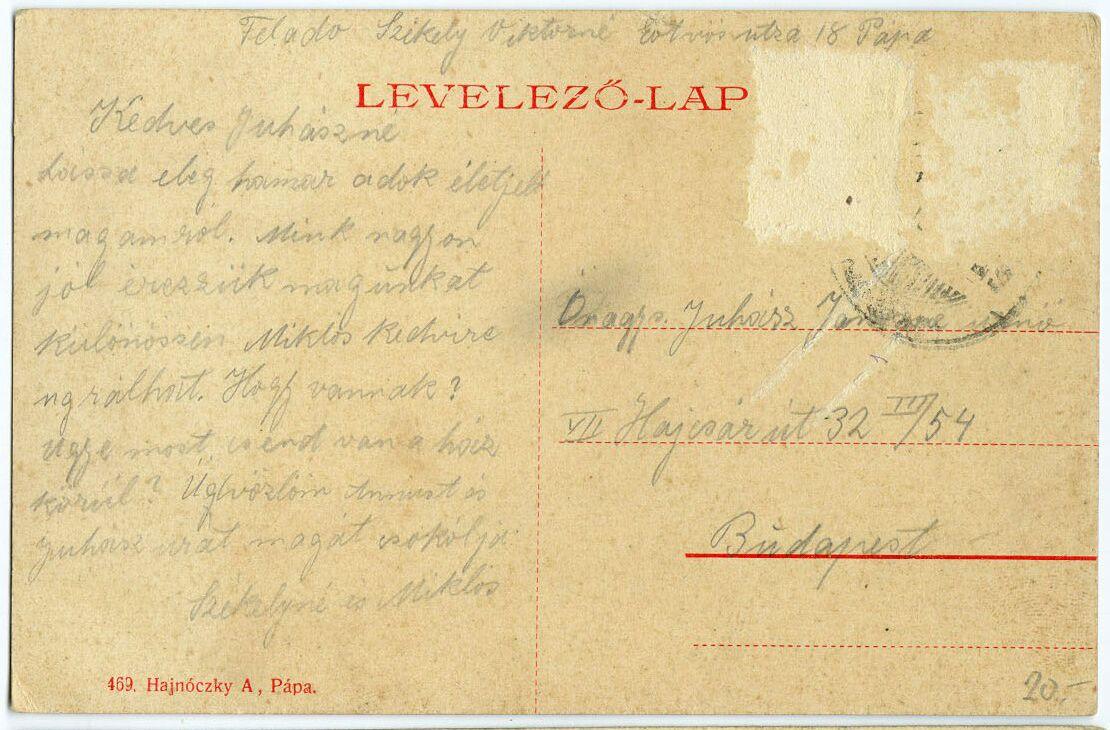 Feladó Székely Viktorné Eötvös utza 18 Pápa
LEVELEZŐ-LAP
Kedves Juhászné
Lássa elég hamar adok életjelt
magamról. Mink nagyon
jól érezzük magunkat
különössen Miklós kedvire
ugrálhat. Hogy vannak?
Ugye most csend van a ház
körül? Üdvözlöm Annust és
Juhász urat magát csókolja
Székelyné és Miklós
Őnagys. Juhász
VII Hajcsár út 32 III/54
Budapest
469. Hajnóczky A, Pápa.
20.-